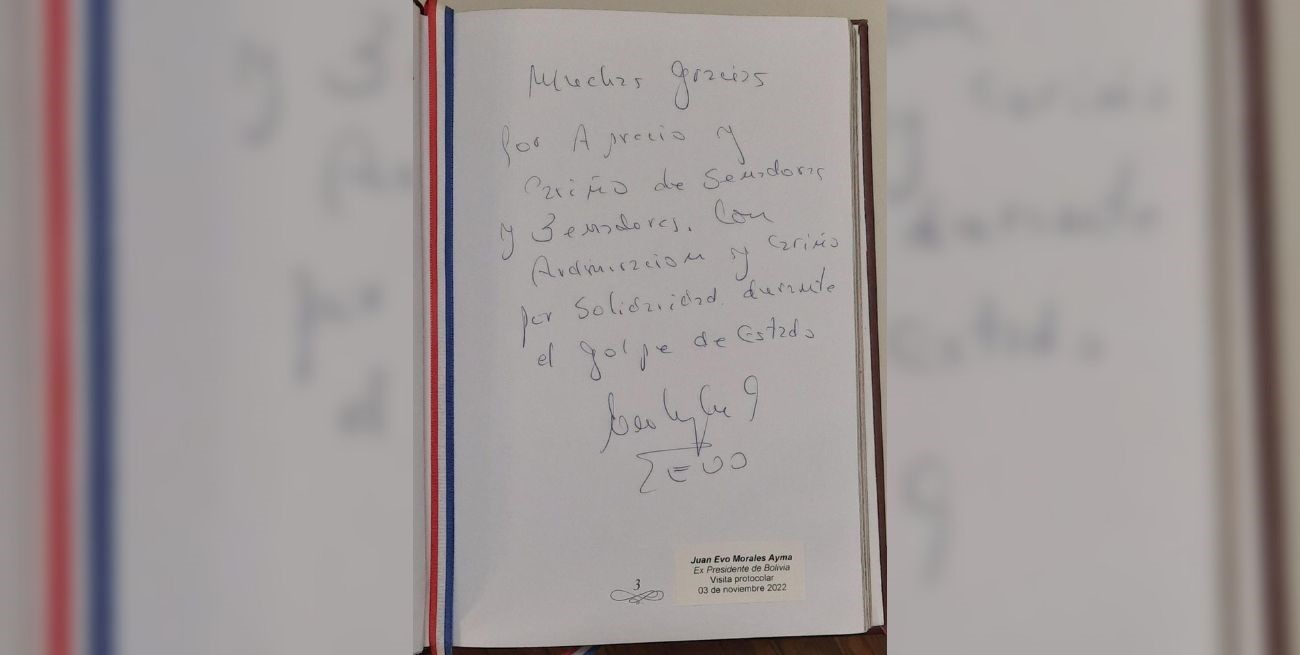 Muchas gracias
por Aprecio y
Cariño de Senadoras
y Senadores. Con
Admiracion y cariño
por Solidaridad durante
el golpe de Estado
EVO
Juan Evo Morales Ayma
Ex Presidente de Bolivia
Visita protocolar
03 de noviembre 2022
3